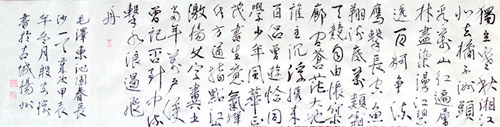 獨立寒秋湘江
北去橘子洲頭
看萬山紅遍層
林盡染漫江碧
透百舸爭流
鷹擊長空魚
翔淺底萬類
競自由悵寥
廓問蒼茫大地
誰主沉浮攜來
百侶曾遊恰同
學少年風華正
茂書生意氣揮
斥方遒指點江山
激揚文字糞土
當年萬戶侯
曾記否到中流
擊水浪遏飛
舟
毛澤東沁園春長
沙一首 甲辰
年冬月
書於古城揚州